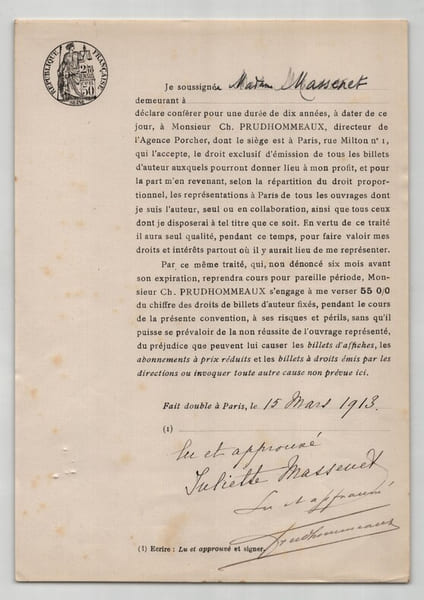 RÉPUBLIQUE FRANÇAISE
SEINE
Je soussignée Madame Massenet
demeurant à
déclare conférer pour une durée de dix années, à dater de ce
jour, à Monsieur Ch. PRUDHOMMEAUX, directeur de
l'Agence Porcher, dont le siège est à Paris, rue Milton n° 1,
qui l'accepte, le droit exclusif d'émission de tous les billets
d'auteur auxquels pourront donner lieu à mon profit, et pour
la part m'en revenant, selon la répartition du droit propor-
tionnel, les représentations à Paris de tous les ouvrages dont
je suis l'auteur, seul ou en collaboration, ainsi que tous ceux
dont je disposerai à tel titre que ce soit. En vertu de ce traité
il aura seul qualité, pendant ce temps, pour faire valoir mes
droits et intérêts partout où il y aurait lieu de me représenter.
Par ce même traité, qui, non dénoncé six mois avant
son expiration, reprendra cours pour pareille période, Mon-
sieur Ch. PRUDHOMMEAUX s'engage à me verser 55 0/0
du chiffre des droits de billets d'auteur fixés, pendant le cours
de la présente convention, à ses risques et périls, sans qu'il
puisse se prévaloir de la non réussite de l'ouvrage représenté,
du préjudice que peuvent lui causer les billets d'affiches, les
abonnements à prix réduits et les billets à droits émis par les
directions ou invoquer toute autre cause non prévue ici.
Fait double à Paris, le 15 Mars 1913.
(1)
lu et approuvé
Juliette Massenet
Lu et approuvé
Prudhommeaux
(1) Ecrire : Lu et approuvé et signer.